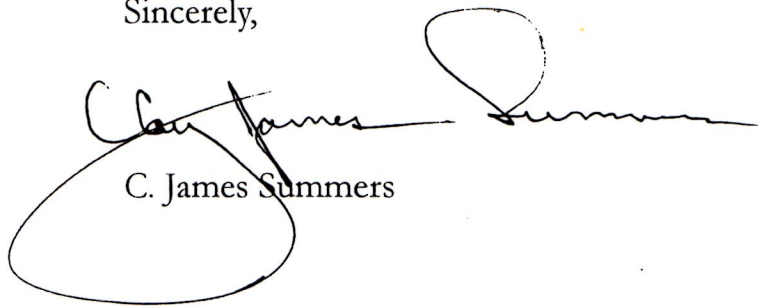 Sincerely,
Clay James Summers
C. James Summers